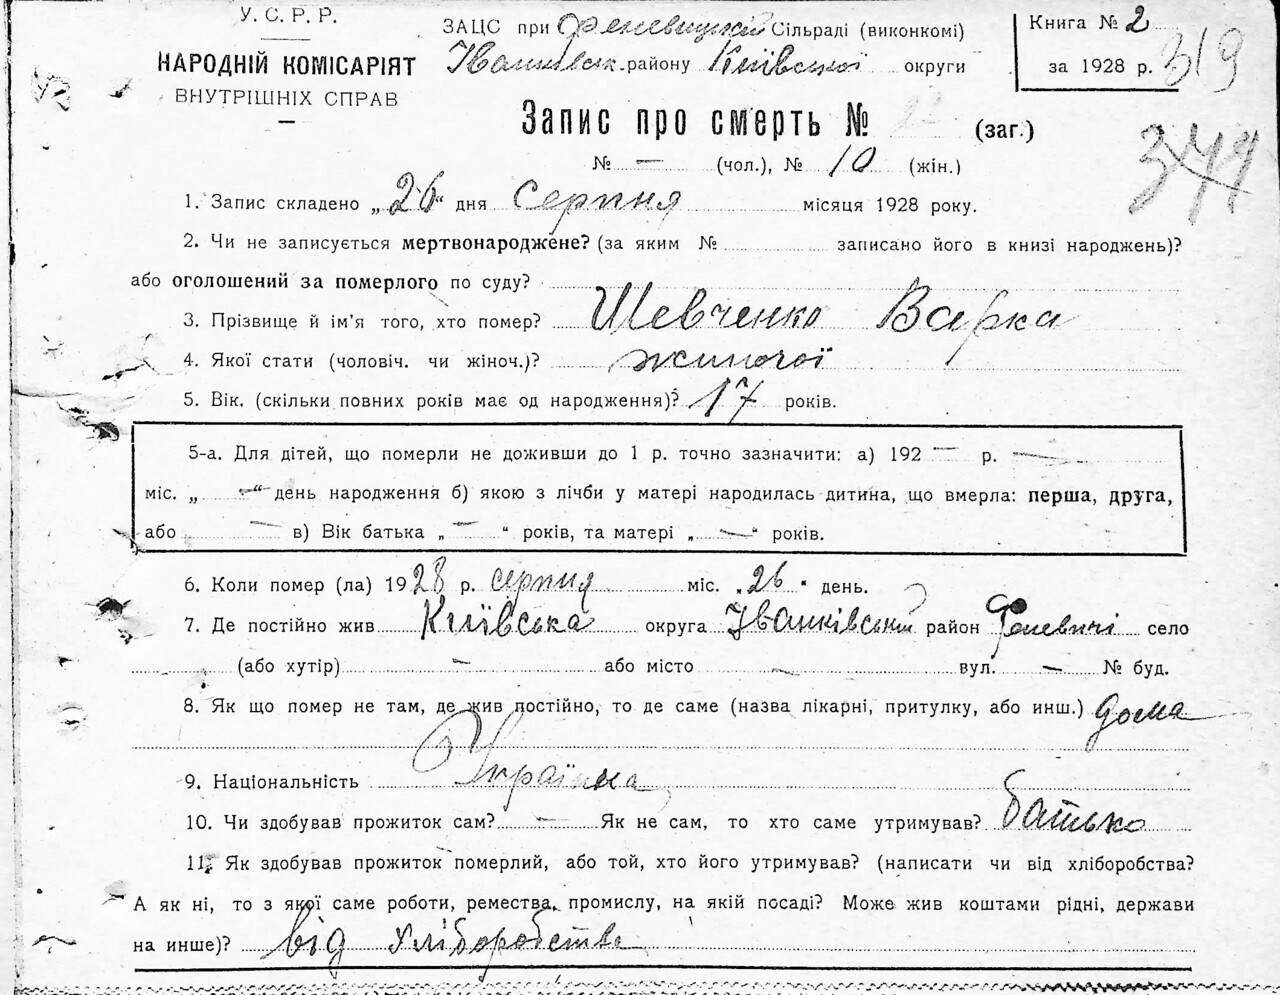 У.С.Р.Р.
НАРОДНІЙ КОМІСАРІЯТ
ВНУТРІШНІХ СПРАВ
ЗАЦС при Феневицкій Сільраді (виконкомі)
Іванківськ. району Київської округи
Книга № 2
за 1928 р.
319
344
Запис про смерть № (заг.)
№ — (чол.), № 10 (жін.)
1. Запис складено „26“ дня серпня місяця 1928 року.
2. Чи не записується мертвонароджене? (за яким № записано його в книзі народжень)?
або оголошений за померлого по суду?
3. Прізвище й ім'я того, хто помер? Шевченко Варка
4. Якої стати (чоловіч. чи жіноч.)? жиночої
5. Вік. (скільки повних років має од народження)? 17 років.
5-а. Для дітей, що померли не доживши до 1 р. точно зазначити: а) 192 — р. —
міс. „ —“ день народження б) якою з лічби у матері народилась дитина, що вмерла: перша, друга,
або — в) Вік батька „ — “ років, та матері „ — “ років.
6. Коли помер (ла) 1928 р. серпня міс. „26“ день.
7. Де постійно жив Київська округа Іванківський район Феневичі село
(або хутір) — або місто — вул. — № буд.
8. Як що помер не там, де жив постійно, то де саме (назва лікарні, притулку, або инш.) дома
9. Національність Українка
10. Чи здобував прожиток сам? — Як не сам, то хто саме утримував? батько
11. Як здобував прожиток померлий, або той, хто його утримував? (написати чи від хліборобства?
А як ні, то з якої саме роботи, ремества, промислу, на якій посаді? Може жив коштами рідні, держави
на инше)? від хліборобства